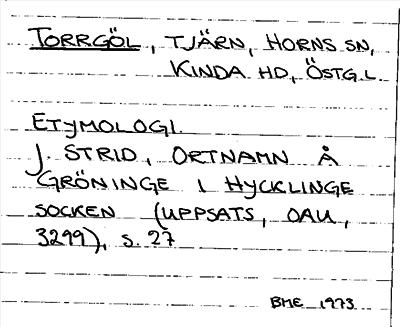 TORRGÖL, TJÄRN, HORNS SN,
KINDA HD, ÖSTG.L.
ETYMOLOGI.
J. STRID, ORTNAMN Å
GRÖNINGE I HYCKLINGE
SOCKEN (UPPSATS, OAU,
3299), S. 27
BME 1973